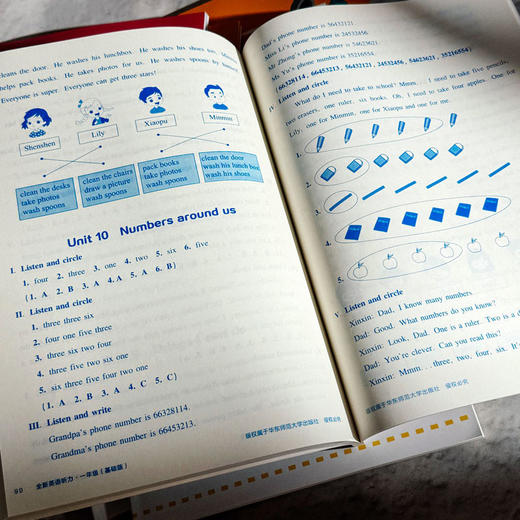 cleans the door. He washes his lunchbox. He washes his shoes too. Minmin
helps pack books. He takes photos for us. He washes spoons by himself.
Everyone is super. Everyone can get three stars!
Shenshen
Lily
Xiaopu
Minmin
clean the desks
take photos
wash spoons
clean the chairs
draw a picture
wash spoons
pack books
take photos
wash spoons
clean the door
wash his lunch box
wash his shoes
Unit 10 Numbers around us
I. Listen and circle
1. four 2. three 3. one 4. two 5. six 6. five
{1. A 2. B 3. A 4. A 5. A 6. B}
II. Listen and circle
1. three three six
2. four one five three
3. three six two four
4. three five two six one
5. six three five four two one
{1. A 2. B 3. A 4. C 5. C}
III. Listen and write
Grandpa's phone number is 66328114.
Grandma's phone number is 66453213.
版权属于华东师范大学出版社 侵权必究
90 全新英语听力·一年级(基础版)
Dad's phone number is 56432121.
Miss Li's phone number is 24532456.
Mr Zhong's phone number is 54623621.
Ms Yu's phone number is 35216554.
{66328114, 66453213, 56432121, 24532456, 54623621, 35216554}
IV Listen and circle
What do I need to take to school? Mmm... I need to take five pencils,
two erasers, one ruler, six books. Oh, I need to take four apples. One for
Lily, one for Minmin, one for Xiaopu and one for me.
1.
2.
3.
4.
5.
V Listen and circle
Xinxin: Dad, I know many numbers.
Dad: Good. What numbers do you know?
Xinxin: Look, Dad. One is a ruler. Two is a d
Dad: You're clever. Can you read this?
Xinxin: Mmm... three, two, four, six. It's
版权属于华东师范大学出版社 侵权必究